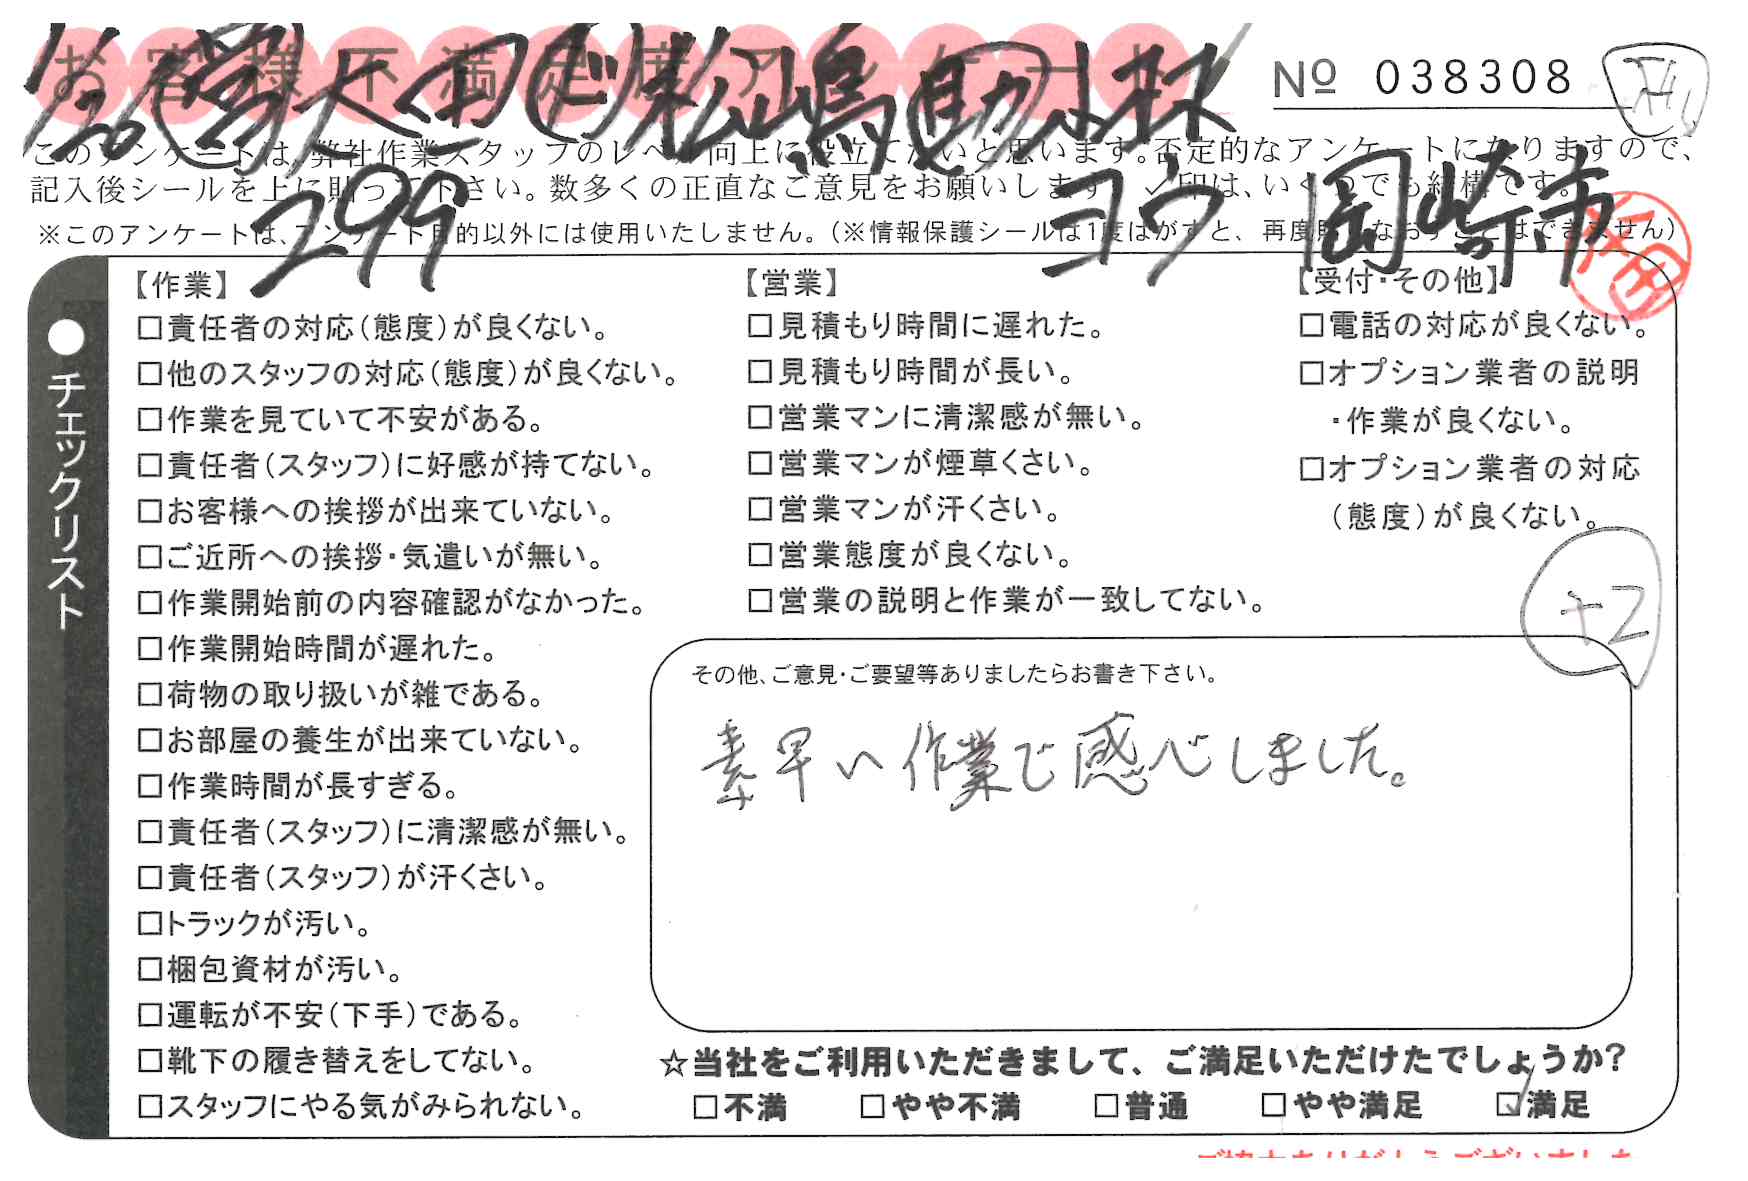 お客様不満足度アンケート
1/20 営大久 ド 松嶋 助小林
Nº 038308
このアンケートは、弊社作業スタッフのレベル向上に役立てたいと思います。否定的なアンケートになりますので、
記入後シールを上に貼って下さい。数多くの正直なご意見をお願いします。✓印は、いくつでも結構です。
299 ヨウ 岡崎市
※このアンケートは、アンケート目的以外には使用いたしません。（※情報保護シールは1度はがすと、再度貼りなおすことはできません）
●チェックリスト
【作業】
□責任者の対応（態度）が良くない。
□他のスタッフの対応（態度）が良くない。
□作業を見ていて不安がある。
□責任者（スタッフ）に好感が持てない。
□お客様への挨拶が出来ていない。
□ご近所への挨拶・気遣いが無い。
□作業開始前の内容確認がなかった。
□作業開始時間が遅れた。
□荷物の取り扱いが雑である。
□お部屋の養生が出来ていない。
□作業時間が長すぎる。
□責任者（スタッフ）に清潔感が無い。
□責任者（スタッフ）が汗くさい。
□トラックが汚い。
□梱包資材が汚い。
□運転が不安（下手）である。
□靴下の履き替えをしてない。
□スタッフにやる気がみられない。
【営業】
□見積もり時間に遅れた。
□見積もり時間が長い。
□営業マンに清潔感が無い。
□営業マンが煙草くさい。
□営業マンが汗くさい。
□営業態度が良くない。
□営業の説明と作業が一致してない。
【受付・その他】
□電話の対応が良くない。
□オプション業者の説明
・作業が良くない。
□オプション業者の対応
（態度）が良くない。
+2
その他、ご意見・ご要望等ありましたらお書き下さい。
素早い作業で感心しました。
☆当社をご利用いただきまして、ご満足いただけたでしょうか?
□不満 □やや不満 □普通 □やや満足 ☑満足
ご協力ありがとうございました